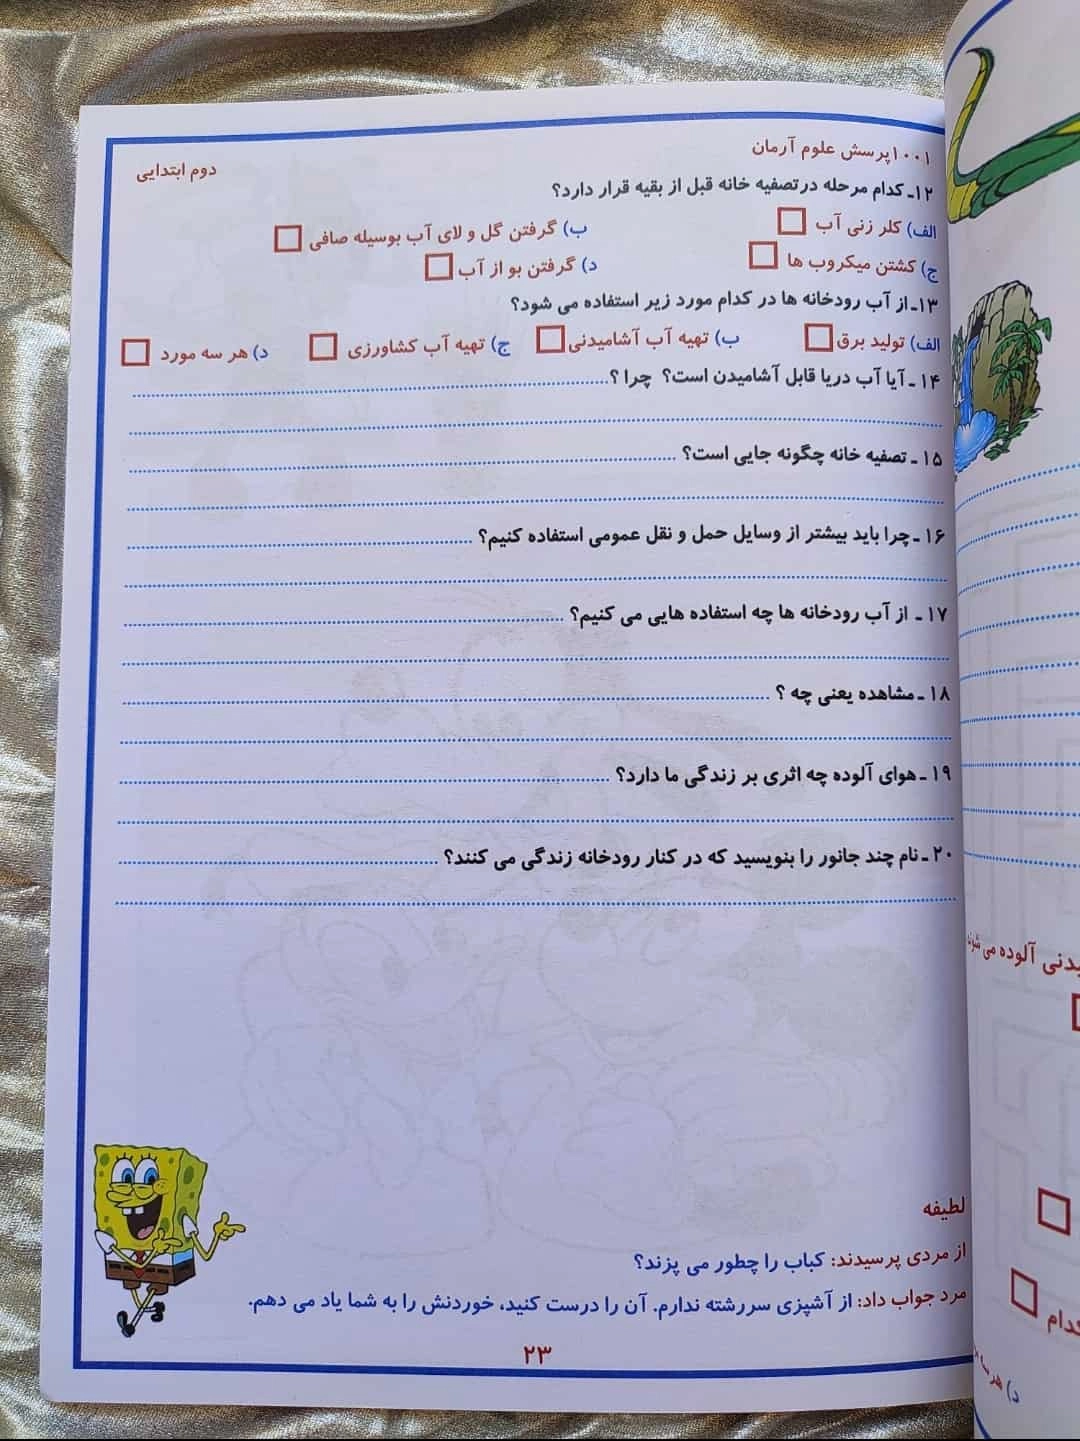 ۱۰۰۱پرسش علوم آرمان
دوم ابتدایی
۱۲ـ کدام مرحله درتصفیه خانه قبل از بقیه قرار دارد؟
الف) کلر زنی آب ب) گرفتن گل و لای آب بوسیله صافی
ج) کشتن میکروب ها د) گرفتن بو از آب
۱۳ـ از آب رودخانه ها در کدام مورد زیر استفاده می شود؟
الف) تولید برق ب) تهیه آب آشامیدنی ج) تهیه آب کشاورزی د) هر سه مورد
۱۴ ـ آیا آب دریا قابل آشامیدن است؟ چرا ؟
۱۵ ـ تصفیه خانه چگونه جایی است؟
۱۶ ـ چرا باید بیشتر از وسایل حمل و نقل عمومی استفاده کنیم؟
۱۷ ـ از آب رودخانه ها چه استفاده هایی می کنیم؟
۱۸ ـ مشاهده یعنی چه ؟
۱۹ ـ هوای آلوده چه اثری بر زندگی ما دارد؟
۲۰ ـ نام چند جانور را بنویسید که در کنار رودخانه زندگی می کنند؟
لطیفه
از مردی پرسیدند: کباب را چطور می پزند؟
مرد جواب داد: از آشپزی سررشته ندارم. آن را درست کنید، خوردنش را به شما یاد می دهم.
۲۳
آلوده می شوند
د) هر سه